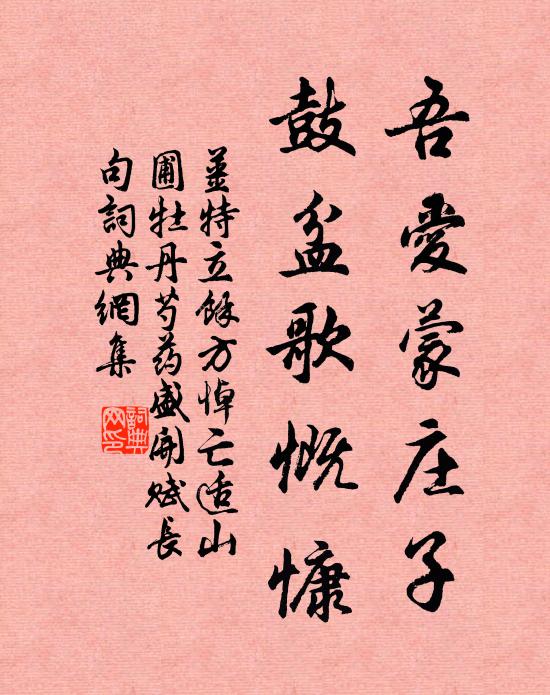 吾愛蒙庄子
鼓盆歌慨慷
姜特立餘方悼亡適山
圃牡丹芍葯盛開賦長
句詞典網集
詞典
网印